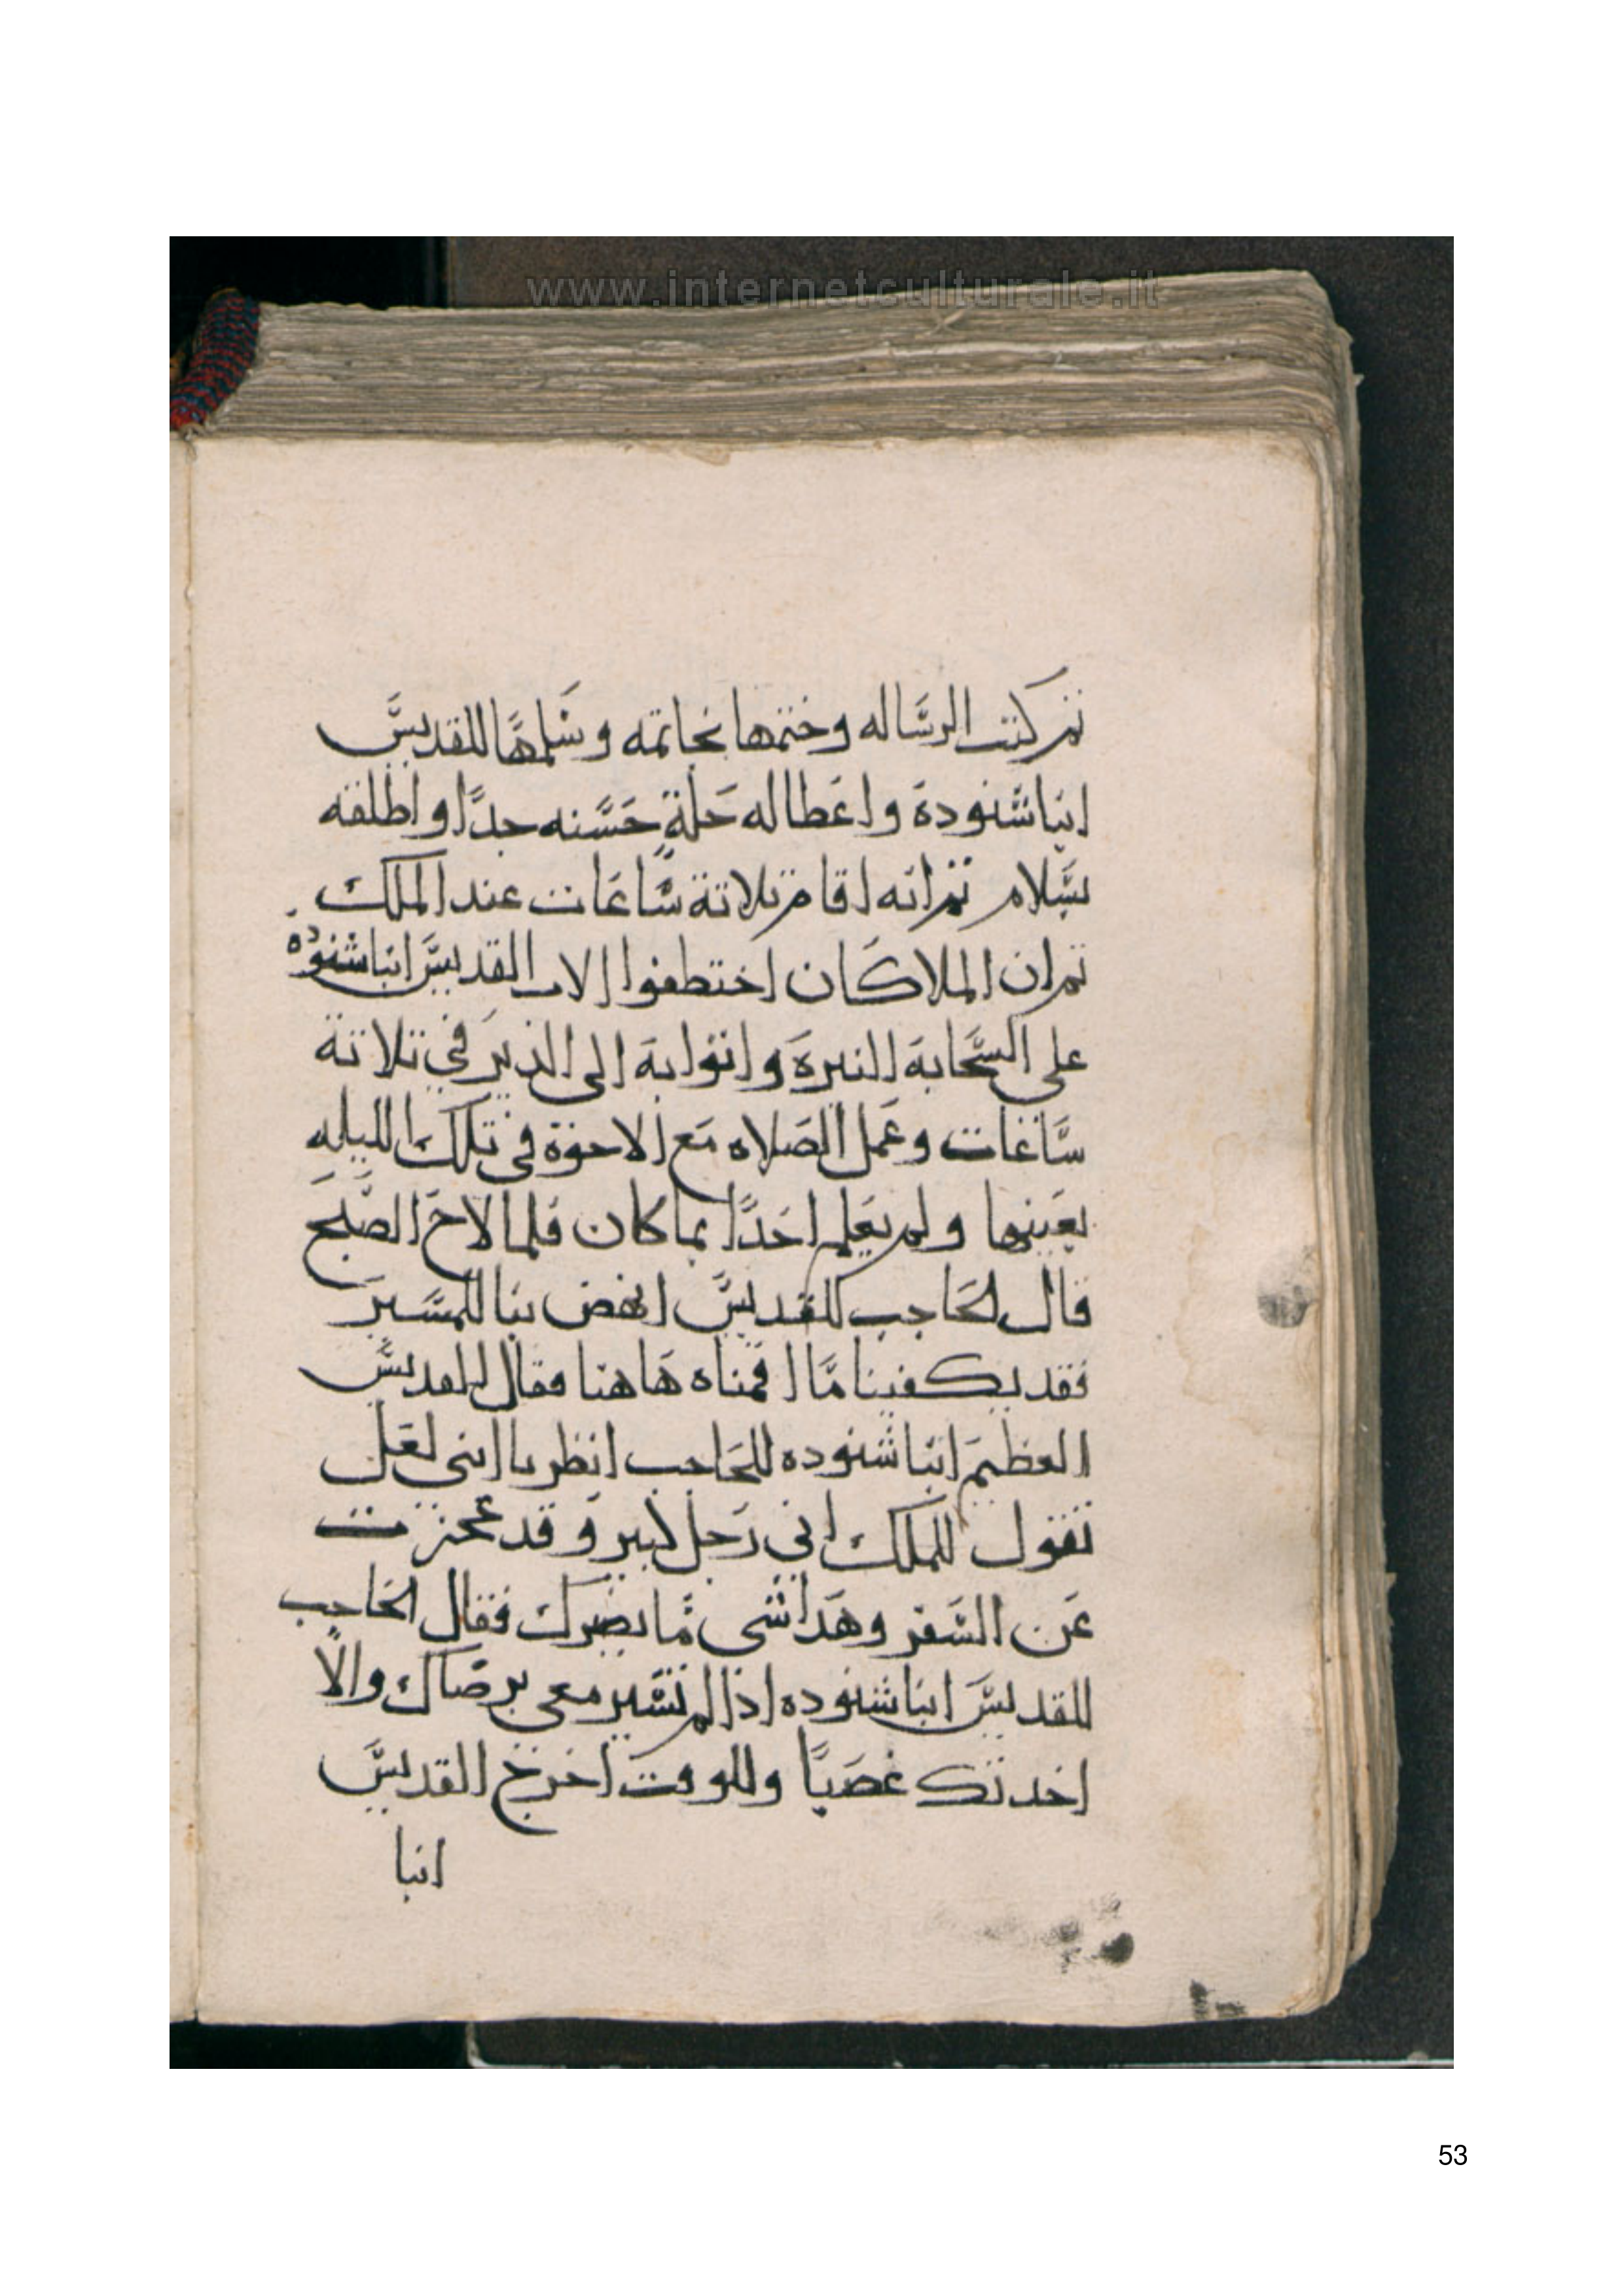 www.internetculturale.it
تم كتب الرساله وختمها بخاتمه وسلمها للقديس
انبا شنودة واعطا له حلةٍ حسنه جدًا واطلقه
بسلام تم انه اقام تلاتة ساعات عند الملك
تم ان الملاكان اختطفوا الاب القديس انبا شنوده
على السحابة النيرة واتوا به الى الدير في تلاتة
ساعات وعمل الصلاه مع الاخوة في تلك الليله
بعينها ولم يعلم احدًا بما كان فلما لاح الصبح
قال الحاجب للقديس انهض بنا للمسير
فقد يكفينا ما اقمناه هاهنا فقال القديس
العظيم انبا شنوده للحاجب انظر يا ابني لعل
تقول للملك اني رجل كبير وقد عجزت
عن السفر وهدا شى ما يضرك فقال الحاجب
للقديس انبا شنوده اذا لم تسير معي برضاك والا
اخدتك غصبًا وللوقت اخرج القديس
انبا
53